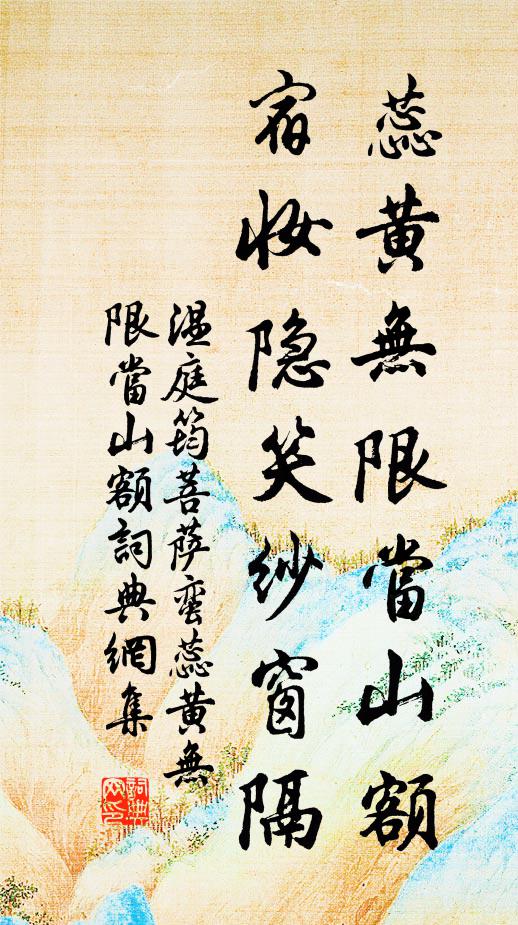 蕊黄無限當山額
宿妝隐笑紗窗隔
温庭筠菩萨蛮蕊黄無
限當山額詞典網集
詞典
网印